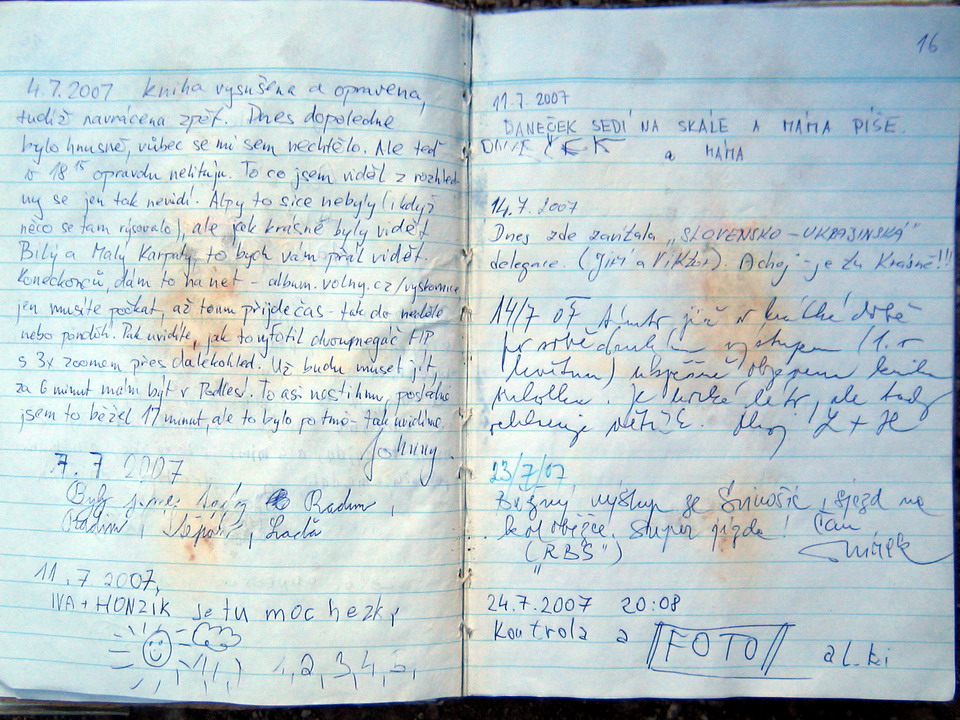 4.7.2007 kniha vysušena a opravena,
tudíž navrácena zpět. Dnes dopoledne
bylo hnusně, vůbec se mi sem nechtělo. Ale teď
v 18 15 opravdu nelituju. To co jsem viděl z rozhled-
ny se jen tak nevidí. Alpy to sice nebyly (i když
něco se tam rýsovalo), ale jak krásně byly vidět
Bílý a Malý Karpaty, to bych vám přál vidět.
Koneckonců, dám to na net - album.volny.cz/
jen musíte počkat, až tomu přijde čas - tak do neděle
nebo pondělí. Pak uvidíte, jak to vyfotil dvoumegáč FIP
s 3x zoomem přes dalekohled. Už budu muset jít,
za 6 minut mám být v Podlesí. To asi nestihnu, posledně
jsem to běžel 17 minut, ale to bylo po tmě - tak uvidíme.
7.7 2007
Byli jsme tady Radim,
Radim, Štěpán,
11.7 2007,
IVA + HONZIK je tu moc hezky
1, 2, 3, 4, 5,
16
11.7.2007
DANEČEK SEDÍ NA SKÁLE A MÁMA PÍŠE.
a MÁMA
14.7.2007
Dnes zde zavítala „SLOVENSKO-UKRAJINSKÁ"
delegace. (Jiří a Viktor). Achoj - je tu krásně!!!
14/7 07 již v krátké době
po sobě výstupem (1. v
květnu) úspěšně objevena kniha
léto, ale tady
větřík. Ahoj L + H
23/7/07
výstup ze sjezd na
koloběžce. Super jízda! Čau
("RBŠ") Mirek
24.7.2007 20:08
Kontrola a FOTO al.ki